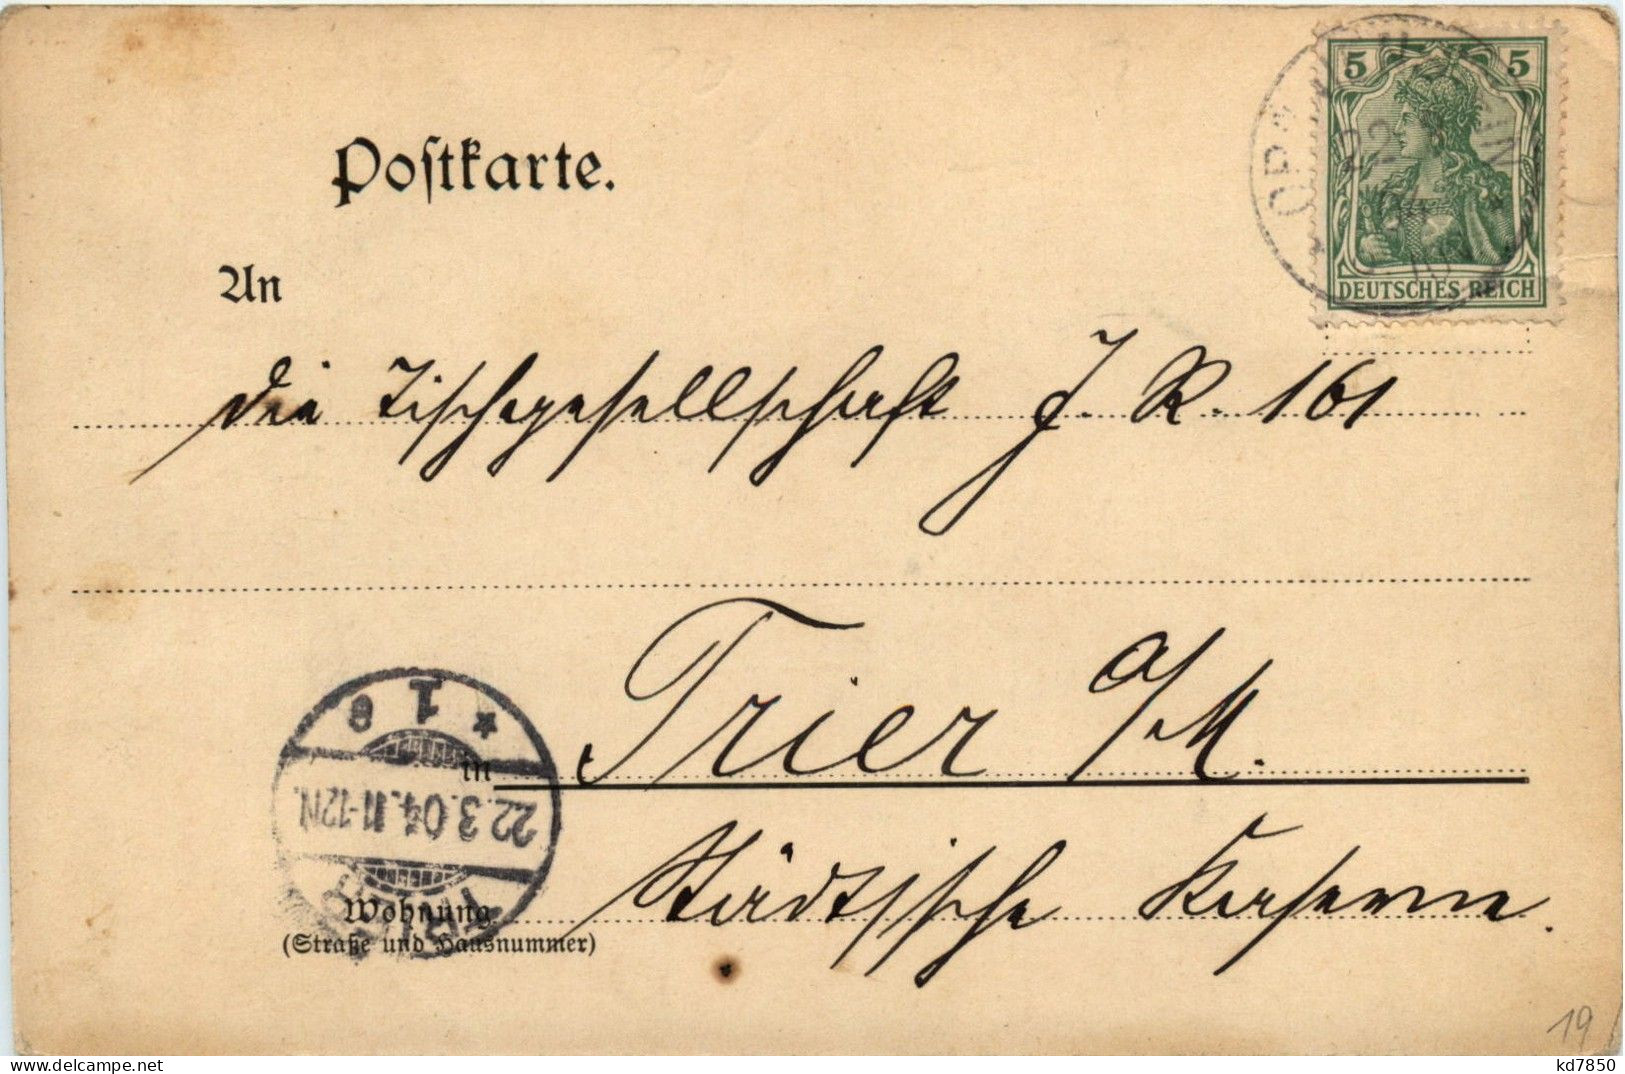 Postkarte.
5 5
DEUTSCHES REICH
An
die Tischgesellschaft J. R. 161
in Trier a/M.
* 1 e
22.3.04.11-12N.
TRIER
Wohnung Städtische Kaserne.
(Straße und Hausnummer)
19
kd7850